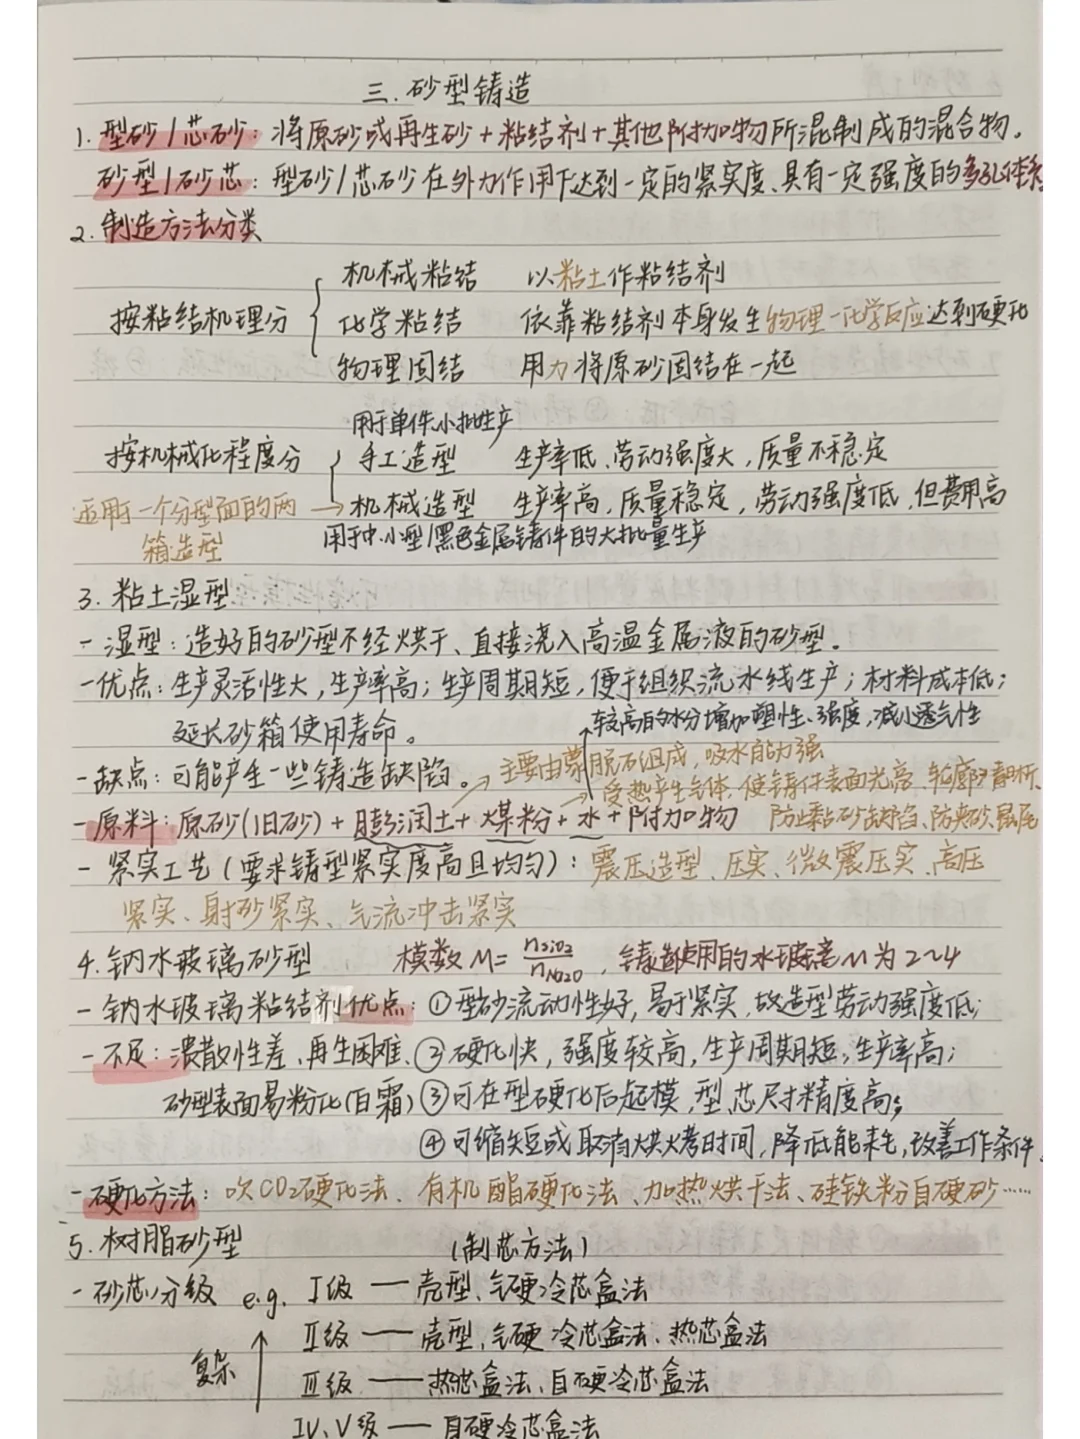 三.砂型铸造
1. 型砂/芯砂：将原砂或再生砂+粘结剂+其他附加物所混制成的混合物。
砂型/砂芯：型砂/芯砂在外力作用下达到一定的紧实度、具有一定强度的多孔体系
2. 制造方法分类
机械粘结 以粘土作粘结剂
按粘结机理分 化学粘结 依靠粘结剂本身发生物理-化学反应达到硬化
物理固结 用力将原砂固结在一起
用于单件、小批生产
按机械化程度分 手工造型 生产率低、劳动强度大，质量不稳定
适用于一个分型面的两 → 机械造型 生产率高，质量稳定，劳动强度低，但费用高
箱造型 用于中、小型/黑色金属铸件的大批量生产
3. 粘土湿型
- 湿型：造好的砂型不经烘干、直接浇入高温金属液的砂型。
- 优点：生产灵活性大，生产率高；生产周期短，便于组织流水线生产；材料成本低；
较高的水分增加塑性、强度，减小透气性
延长砂箱使用寿命。
- 缺点：可能产生一些铸造缺陷。 主要由蒙脱石组成，吸水能力强
受热产生气体，使铸件表面光亮、轮廓清晰、
- 原料：原砂(旧砂)+膨润土+煤粉+水+附加物 防止黏砂缺陷、防夹砂、鼠尾
- 紧实工艺(要求铸型紧实度高且均匀)：震压造型、压实、微震压实、高压
紧实、射砂紧实、气流冲击紧实
4. 钠水玻璃砂型 模数M=nSiO2/nNa2O，铸造使用的水玻璃M为2~4
- 钠水玻璃粘结剂优点：①型砂流动性好，易于紧实，故造型劳动强度低；
- 不足：溃散性差、再生困难、②硬化快，强度较高，生产周期短，生产率高；
砂型表面易粉化(白霜) ③可在型硬化后起模，型、芯尺寸精度高；
④可缩短或取消烘烤时间，降低能耗，改善工作条件。
- 硬化方法：吹CO2硬化法、有机酯硬化法、加热烘干法、硅铁粉自硬砂……
5. 树脂砂型 (制芯方法)
- 砂芯分级 e.g. Ⅰ级 — 壳型、气硬冷芯盒法
Ⅱ级 — 壳型、气硬冷芯盒法、热芯盒法
复杂 ↑
Ⅲ级 — 热芯盒法、自硬冷芯盒法
Ⅳ、Ⅴ级 — 自硬冷芯盒法